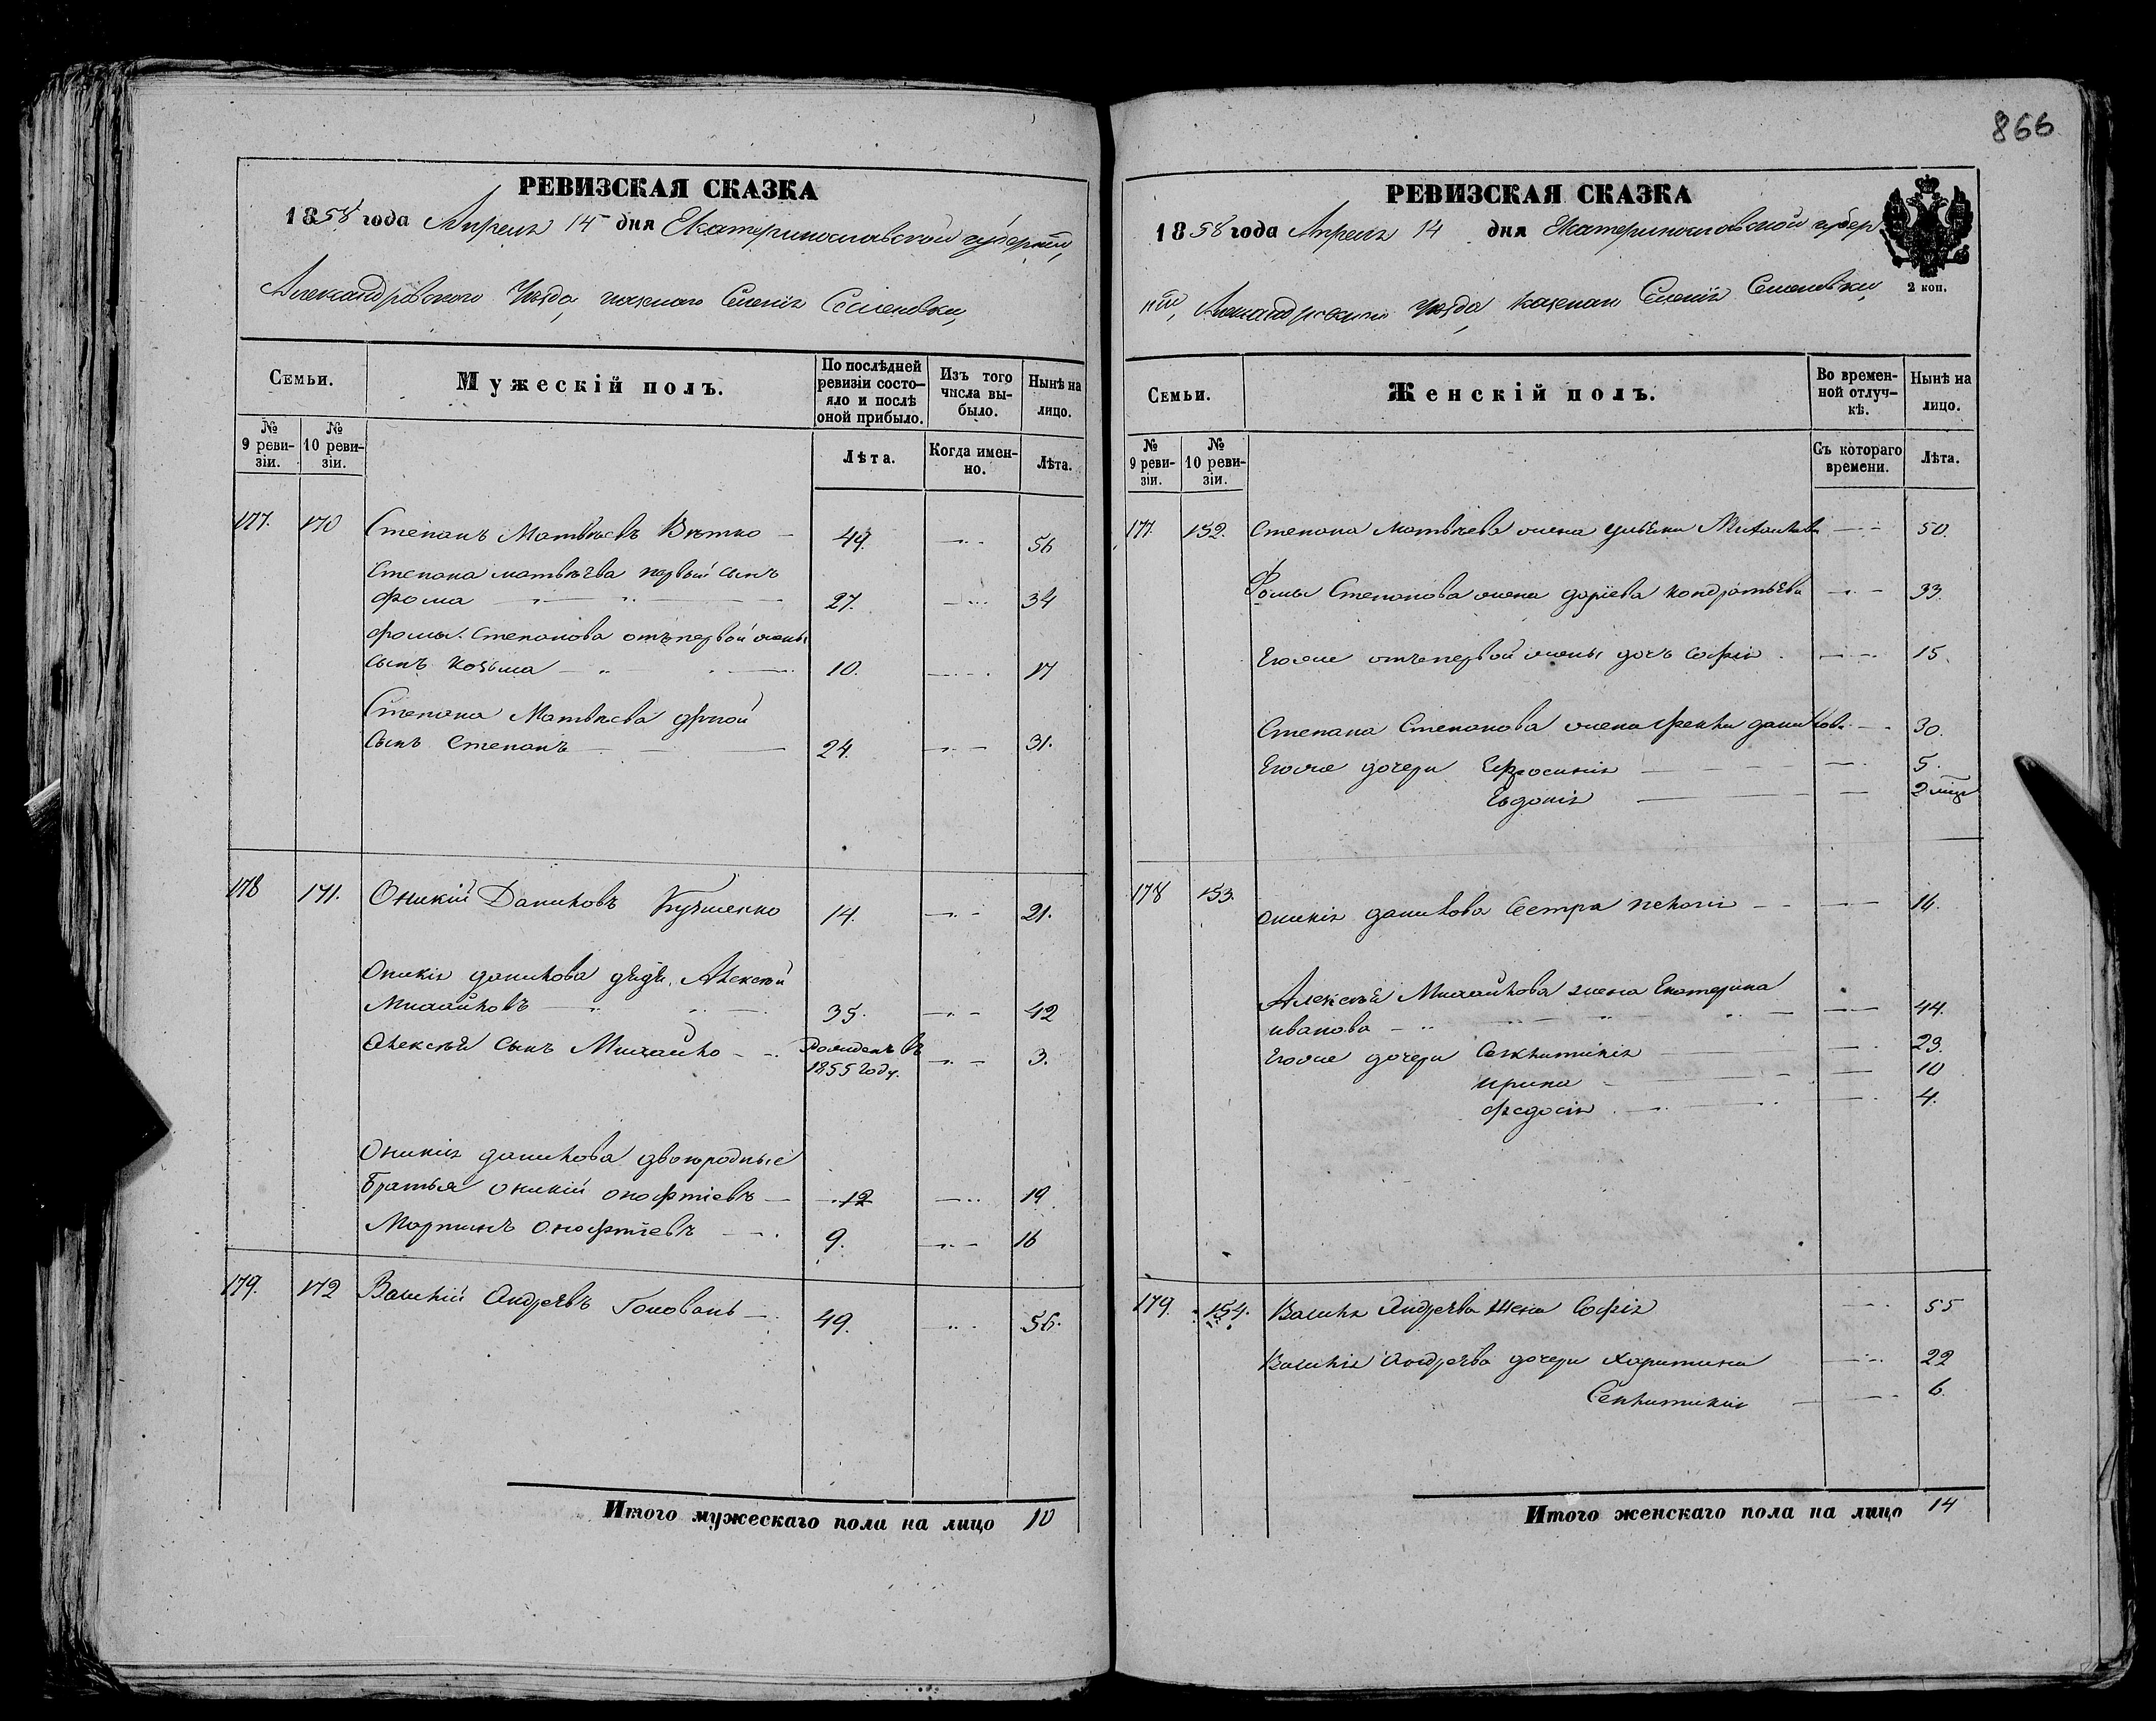 866
РЕВИЗСКАЯ СКАЗКА
1858 года Апреля 14 дня Екатеринославской губерніи,
Александровского Уезда, казенного Селенія Семеновки,
Семьи.
Мужескій полъ.
По послѣдней ревизіи состо-
яло и послѣ оной прибыло.
Изъ того числа вы-
было.
Нынѣ на лицо.
№ 9 реви-
зіи.
№ 10 реви-
зіи.
Лѣта.
Когда имен-
но.
Лѣта.
177. 170 Степанъ Матвѣевъ 49. 56
Степана матвѣева первый сынъ
фома 27. 34
фомы Степанова отъ первой жены
сынъ Козьма 10. 17
Степана Матвѣева другой
сынъ Степанъ 24. 31.
178 171. Оникій Даниловъ 14. 21.
Оникія данилова дядя, Алексѣй
Михайловъ 35. 42
Алексѣя сынъ Михайло Рожденъ въ 1855 году. 3.
Оникія данилова двоюродные
братья оникій онофріевъ 12 19
Мартинъ онофріевъ 9. 16
179. 172 Василій Андреевъ Головань 49. 56.
Итого мужескаго пола на лицо 10
РЕВИЗСКАЯ СКАЗКА
1858 года Апреля 14 дня Екатеринославской губер
ніи, Александровского Уезда, казенного Селенія Семеновки,
2 коп.
Семьи.
Женскій полъ.
Во времен-
ной отлуч-
кѣ.
Нынѣ на лицо.
№ 9 реви-
зіи.
№ 10 реви-
зіи.
Съ котораго времени.
Лѣта.
177. 152. Степана матвѣева жена ульяна Михайлова 50.
Фомы Степанова жена Кондратьева 33.
Егоже отъ первой жены дочь софія 15.
Степана Степанова жена данилова 30.
Егоже дочери Ефросинія 5.
Евдокія 2 мѣс
178 153. оникія данилова Сестра 14.
Алексѣя Михайлова жена Екатерина
иванова 44.
Егоже дочери 23.
ирина 10
федосія 4.
179. 154. Василія Андреева Жена Софія 55
Василія Андреева дочери Харитина 22
6.
Итого женскаго пола на лицо 14